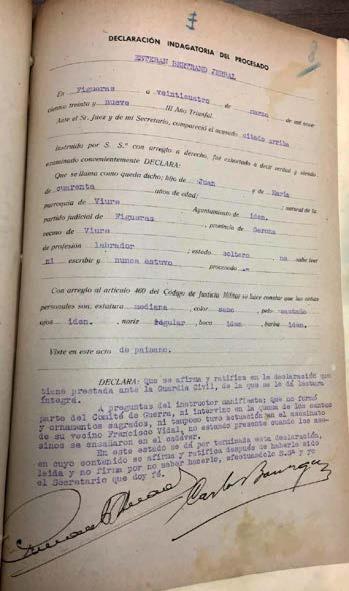 8
DECLARACIÓN INDAGATORIA DEL PROCESADO
ESTEBAN BERTRAND JERBAL
En Figueras a veinticuatro de marzo de mil nove-
cientos treinta y nueve III Año Triunfal.
Ante el Sr. Juez y de mi Secretario, compareció el acusado citado arriba
instruido por S. S.ª con arreglo a derecho, fué exhortado a decir verdad y siendo
examinado convenientemente DECLARA:
Que se llama como queda dicho; hijo de Juan y de María
de cuarenta años de edad; natural de la
parroquia de Viure Ayuntamiento de iden.
partido judicial de Figueras, provincia de Gerona
vecino de Viure
de profesión labrador; estado soltero, no sabe leer
ni escribir y nunca estuvo procesado.-
Con arreglo al artículo 460 del Código de Justicia Militar se hace constar que las señas
personales son: estatura mediana, color sano, pelo castaño
ojos iden., nariz regular, boca iden, barba iden.
Viste en este acto de paisano.
DECLARA: Que se afirma y ratifica en la declaración que
tiene prestada ante la Guardia Civil, de la que se le dá lectura
íntegra.
A preguntas del instructor manifiesta: que no formó
parte del Comité de Guerra, ni intervino en la quema de los santos
y ornamentos sagrados, ni tampoco tuvo actuación en el asesinato
de su vecino Francisco Vidal, no estando presente cuando los ase-
sinos se ensañaron en el cadáver.
En este estado se dá por terminada esta declaración,
en cuyo contenido se afirma y ratifica después de haberle sido
leída y no firma por no saber hacerlo, efectuandolo S.Sª y yo
el Secretario que doy fé.
Carlos